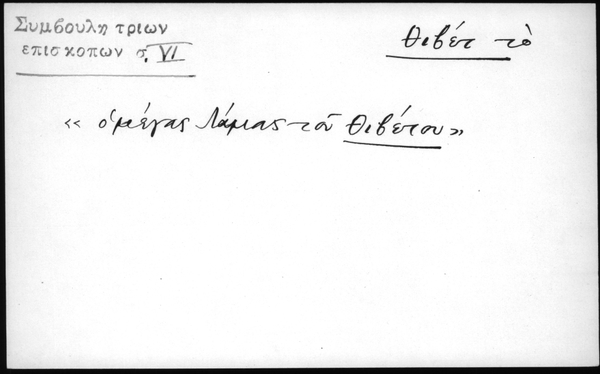 Συμβουλη τριων
επισκοπων σ. VI
Θιβέτ τὸ
« ὁ μέγας Λάμας τοῦ Θιβέτου »